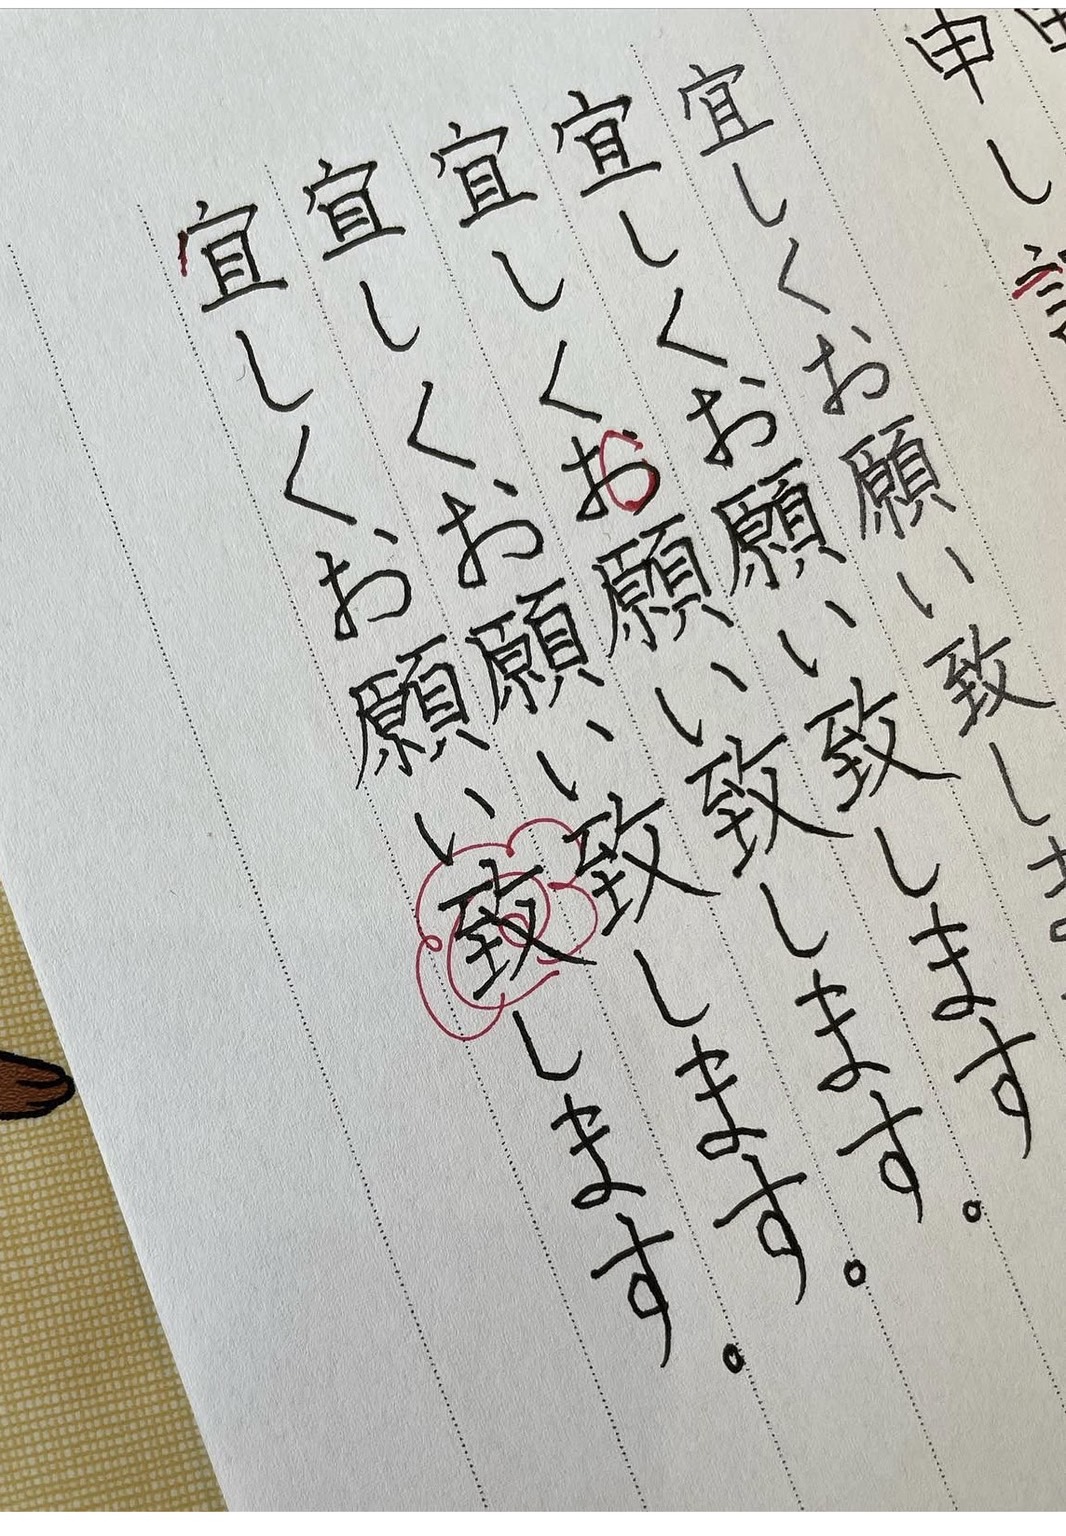 申し
宜しくお願い致しま
宜しくお願い致します
宜しくお願い致します。
宜しくお願い致します。
宜しくお願い致します。